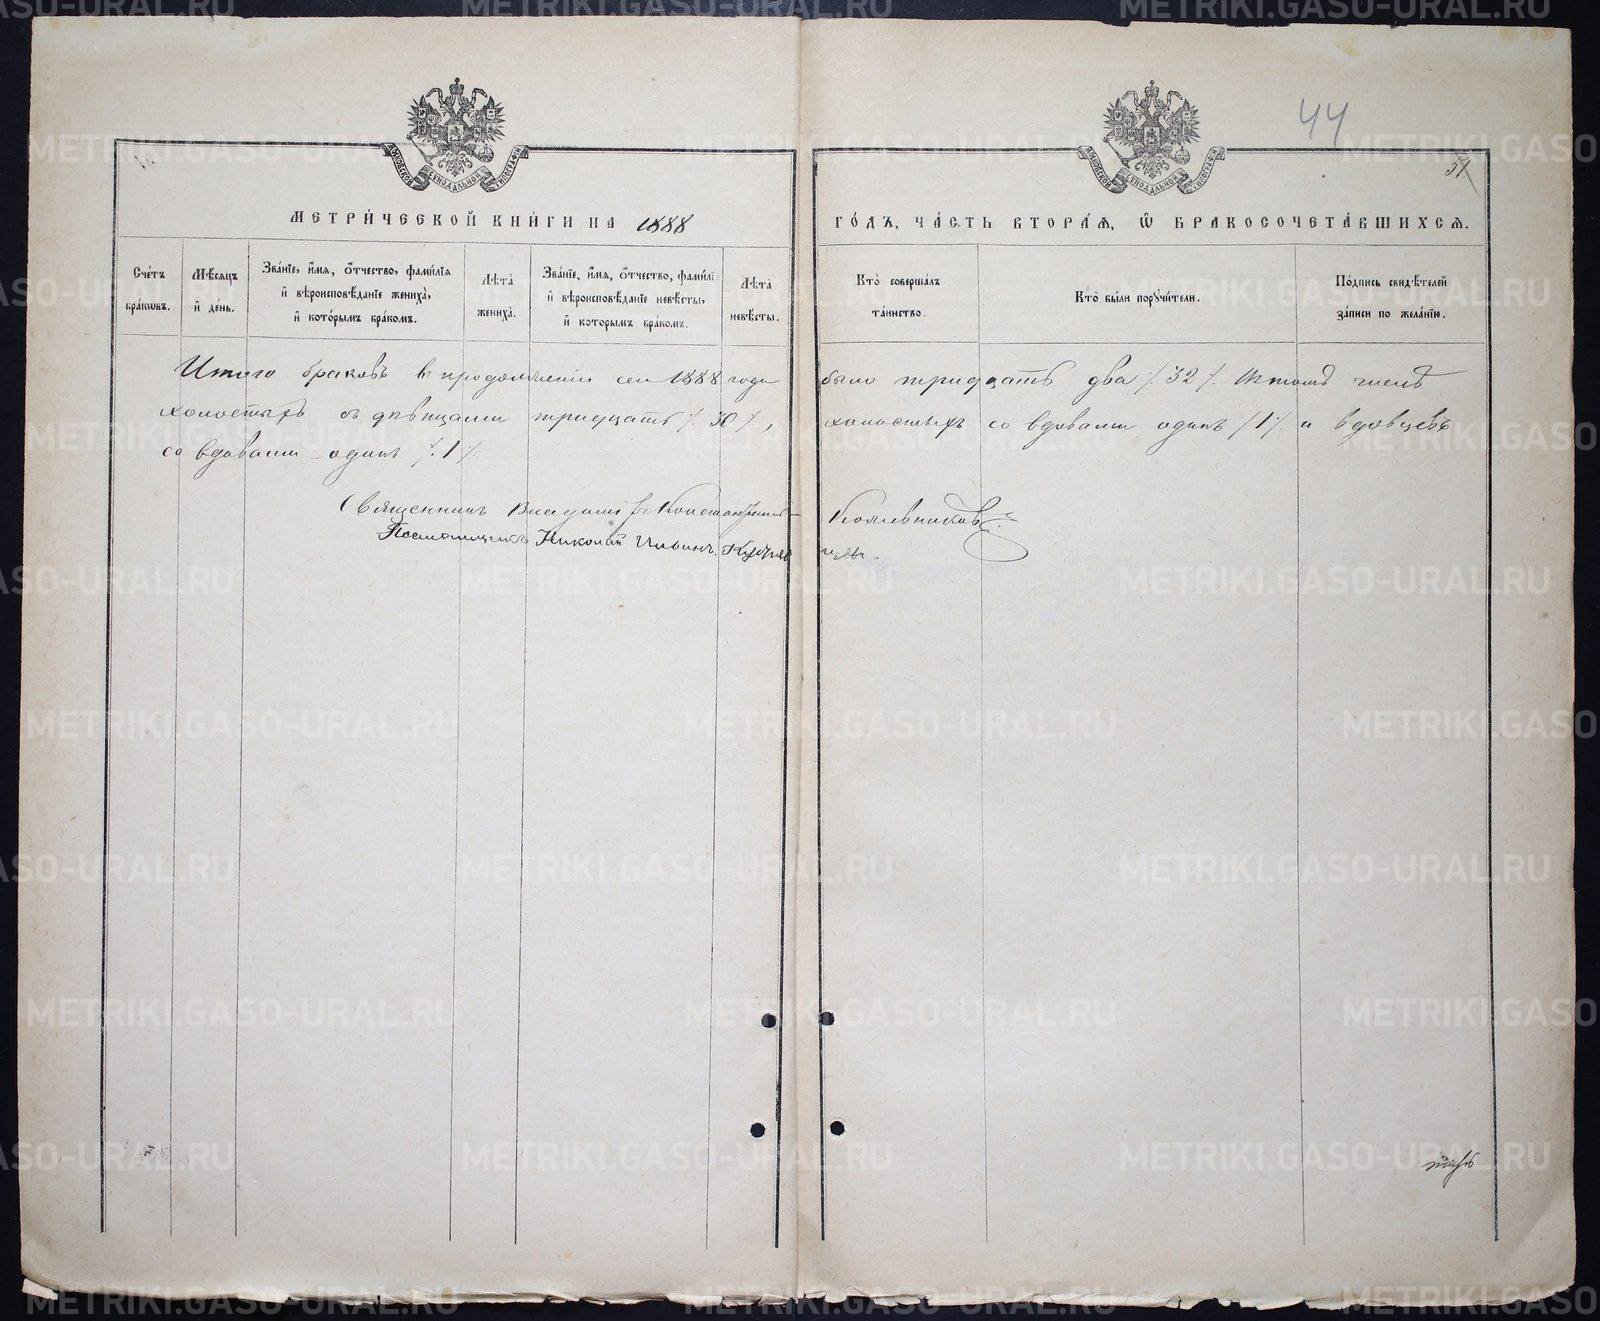 44
51
МЕТРИ́ЧЕСКОЙ КНИ́ГИ НА 1888 ГО́ДЪ, ЧА́СТЬ ВТОРА́Я, Ѡ БРАКОСОЧЕТА́ВШИХСЯ.
Сче́тъ бра́кѡвъ.
Мѣ́сяцъ и҆ де́нь.
Зва́нїе, и҆́мя, ѻ҆́тчество, фами́лїя и҆ вѣроисповѣ́данїе жениха̀, и҆ кото́рымъ бра́комъ.
Лѣ́та жениха̀.
Зва́нїе, и҆́мя, ѻ҆́тчество, фами́лїя и҆ вѣроисповѣ́данїе невѣ́сты, и҆ кото́рымъ бра́комъ.
Лѣ́та невѣ́сты.
Кто̀ соверша́лъ та́инство.
Кто̀ бы́ли порꙋчи́тели.
По́дпись свидѣ́телей за́писи по жела́нїю.
Итого браковъ въ продолженіи сего 1888 года было тридцать два /. 32 /. Въ томъ числѣ
холостыхъ съ дѣвицами тридцать /. 30 /., холостыхъ со вдовами одинъ /. 1 /. и вдовцевъ
со вдовами одинъ /. 1 /.
Священникъ Константинъ Кожевниковъ
Псаломщикъ Николай
METRIKI.GASO-URAL.RU